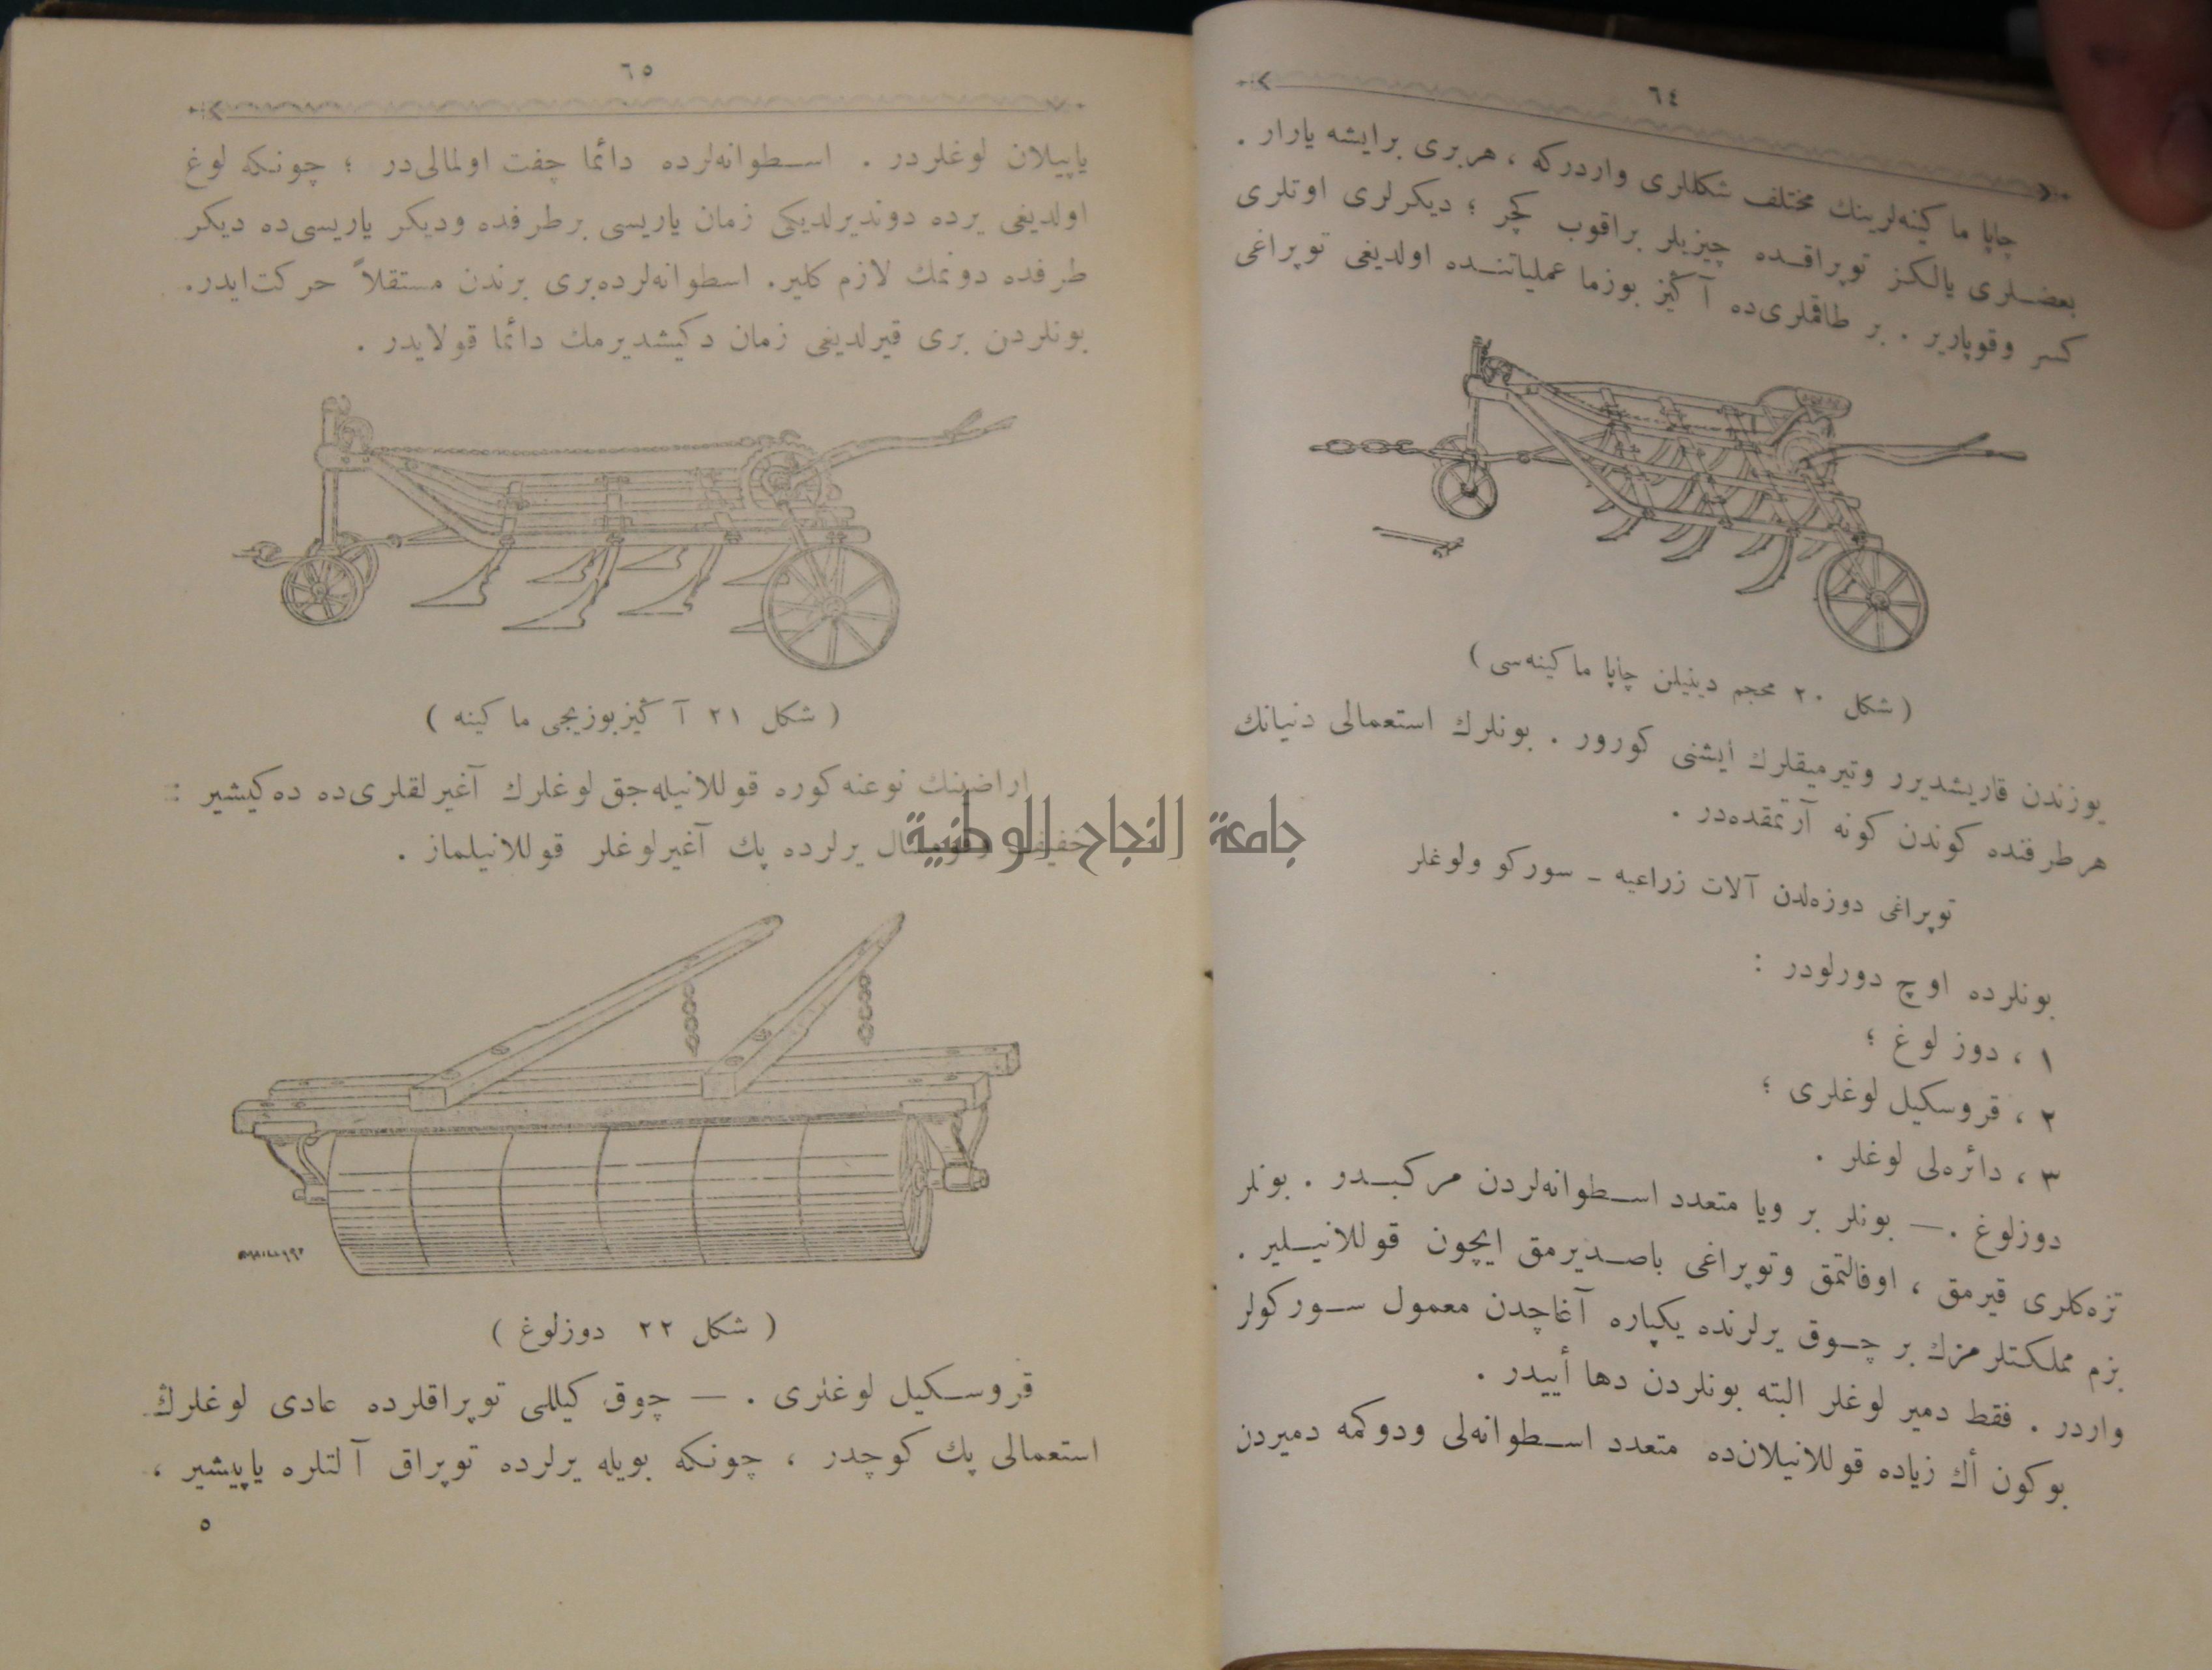 ٦٤
چاپا ما كینه‌لرینك مختلف شكللری واردركه ، هربری برایشه یارار .
بعضـلری یالكز توپراقـده چیزیلر براقوب كچر ؛ دیكرلری اوتلری
كسر وقوپاریر . بر طاقملری‌ده آ ڭیز بوزما عملیاتنـده اولدیغی توپراغی
( شكل ٢٠ محجم دینیلن چاپا ما كینه‌سی )
یوزندن قاریشدیرر وتیرمیقلرك ایشنی كورور . بونلرك استعمالی دنیانك
هرطرفنده كوندن كونه آرتمقده‌در .
توپراغی دوزه‌لدن آلات زراعیه ـ سوركو ولوغلر
بونلرده اوچ دورلودر :
١ ، دوز لوغ ؛
٢ ، قروسكیل لوغلری ؛
٣ ، دائره‌لی لوغلر .
دوزلوغ . — بونلر بر ویا متعدد اسـطوانه‌لردن مركبـدر . بونلر
تزه‌كلری قیرمق ، اوفالتمق وتوپراغی باصـدیرمق ایچون قوللانیـلیر .
بزم مملكتلرمزك بر چـوق یرلرنده یكپاره آغاچدن معمول سـوركولر
واردر . فقط دمیر لوغلر البته بونلردن دها أییدر .
بوكون أك زیاده قوللانیلان‌ده متعدد اسـطوانه‌لی ودوكمه دمیردن
٦٥
یاپیلان لوغلردر . اسـطوانه‌لرده دائما چفت اولمالی‌در ؛ چونكه لوغ
اولدیغی یرده دوندیرلدیكی زمان یاریسی برطرفده ودیكر یاریسی‌ده دیكر
طرفده دونمك لازم كلیر. اسطوانه‌لرده‌بری برندن مستقلاً حركت‌ایدر.
بونلردن بری قیرلدیغی زمان دكیشدیرمك دائما قولایدر .
( شكل ٢١ آ ڭیزبوزیجی ما كینه )
اراضینك نوعنه‌كوره قوللانیله‌جق لوغلرك آغیرلقلری‌ده ده‌كیشیر :
خفیف وقومسال یرلرده پك آغیرلوغلر قوللانیلماز .
جامعة النجاح الوطنية
( شكل ٢٢ دوزلوغ )
قروسـكیل لوغلری . — چوق كیللی توپراقلرده عادی لوغلرڭ
استعمالی پك كوچدر ، چونكه بویله یرلرده توپراق آ لتلره یاپیشیر ،
٥